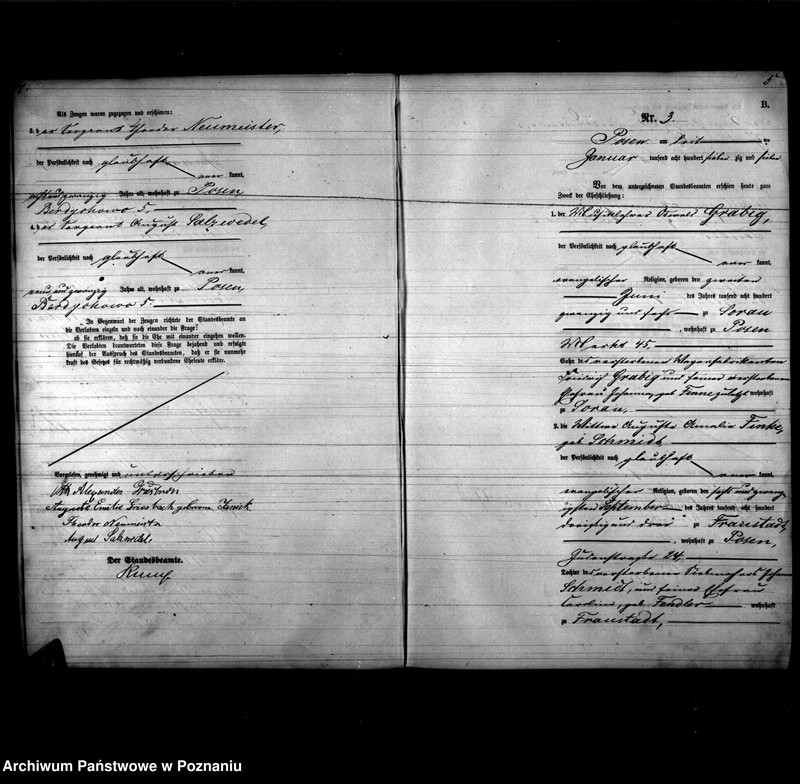 Als Zeugen waren zugezogen und erschienen:
3. der Sergeant Theodor Neumeister,
der Persönlichkeit nach glaubhaft
kannt,
achtundzwanzig Jahre alt, wohnhaft zu Posen
Berdychowo 5,
4. der Sergeant August Salzwedel,
der Persönlichkeit nach glaubhaft
kannt,
neunundzwanzig Jahre alt, wohnhaft zu Posen,
Berdychowo 5.
In Gegenwart der Zeugen richtete der Standesbeamte an
die Verlobten einzeln und nach einander die Frage:
ob sie erklären, daß sie die Ehe mit einander eingehen wollen.
Die Verlobten beantworteten diese Frage bejahend und erfolgte
hierauf der Ausspruch des Standesbeamten, daß er sie nunmehr
kraft des Gesetzes für rechtmäßig verbundene Eheleute erkläre.
Vorgelesen, genehmigt und unterschrieben
Alexander
Auguste Emilie geborene
Theodor Neumeister
August Salzwedel
Der Standesbeamte.
5
B.
Nr. 3.
Posen am ten
Januar tausend acht hundert sieben zig und sieben
Vor dem unterzeichneten Standesbeamten erschien heute zum
Zweck der Eheschließung:
1. der Musiklehrer Oswald Grabig,
der Persönlichkeit nach glaubhaft
kannt,
evangelischer Religion, geboren den zweiten
Juni des Jahres tausend acht hundert
zwanzig und sechs zu Sorau
, wohnhaft zu Posen
Markt 45
Sohn des verstorbenen Wagenfabrikanten
Friedrich Grabig und seiner verstorbenen
Ehefrau Johanna, geb. zuletzt wohnhaft
zu Sorau,
2. die Wittwe Auguste Amalie Finke,
geb. Schmidt
der Persönlichkeit nach glaubhaft
kannt,
evangelischer Religion, geboren den sechs und zwan-
zigsten September des Jahres tausend acht hundert
dreißig und drei zu Fraustadt,
, wohnhaft zu Posen,
Judenstraße 24,
Tochter des verstorbenen
Schmidt, und seiner Ehefrau
Caroline, geb. Fendler wohnhaft
zu Fraustadt,
Archiwum Państwowe w Poznaniu